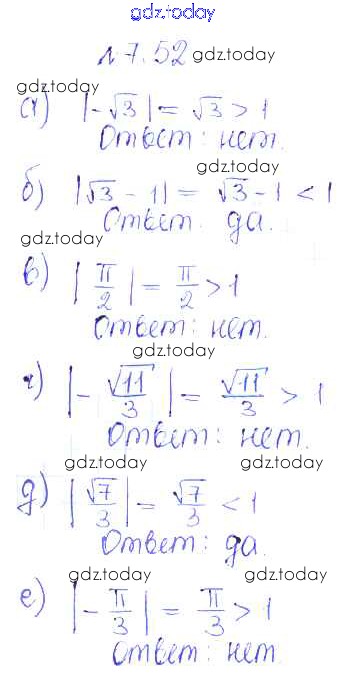 gdz.today
№ 7.52 gdz.today
gdz.today
а) |-√3| = √3 > 1
Ответ: нет.
gdz.today
б) |√3 - 1| = √3 - 1 < 1
Ответ. да.
gdz.today
в) |π/2| = π/2 > 1
Ответ: нет.
gdz.today
г) |-√11/3| = √11/3 > 1
Ответ: нет.
gdz.today gdz.today
д) |√7/3| = √7/3 < 1
Ответ: да.
gdz.today gdz.today
е) |-π/3| = π/3 > 1
Ответ: нет.